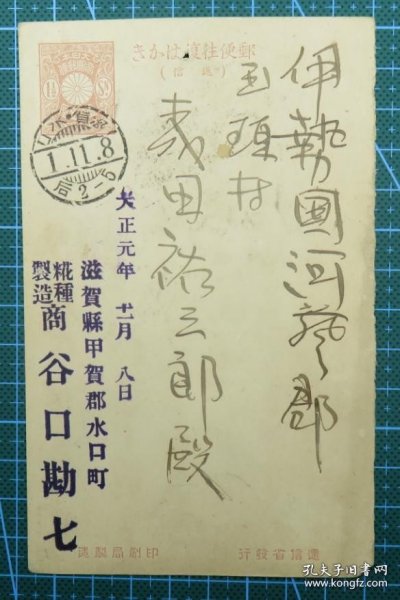 郵便往復はかき
(返信)
1½ S
滋賀・水口
1.11.8
后2-5
伊勢國河藝郡
玉垣村
田祐三郎殿
大正元年 十一月 八日
滋賀縣甲賀郡水口町
糀種
製造
商 谷口勘七
遞信省發行
印刷局製造
孔夫子旧书网
www.kongfz.com